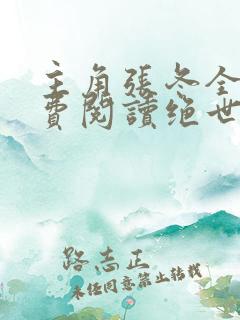 主角張冬全
費閱讀绝世
路志正
未任同意禁止轉載